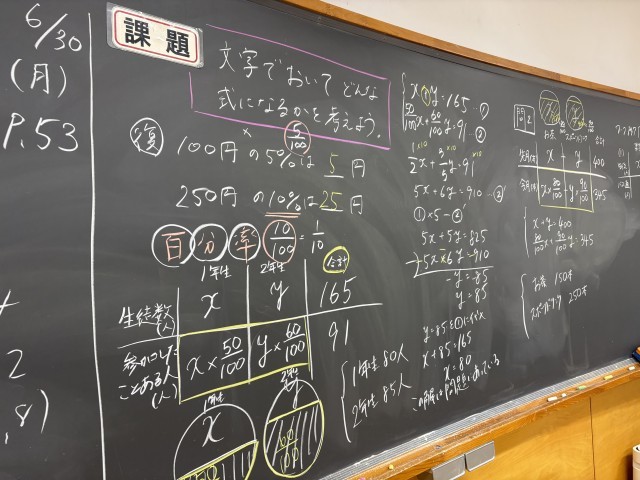 6/30
(月)
P.53
課題
文字でおいてどんな
式になるかを考えよう。
復 100円の5%は 5 円
5/100
250円の10%は 25 円
百分率 10/100 = 1/10
1年生 2年生 合計
生徒数(人) x y 165
ことある人(人) x×50/100 y×60/100 91
1年生 x
2年生 y
60/100
1年生 80人
2年生 85人
x+y=165 ①
50/100x+60/100y=91 ②
5x+6y=910 ②'
①×5-②'
5x+5y=825
5x+6y=910
-y=-85
y=85
y=85を①に代入
x+85=165
x=80
問2
x y 400
x×80/100 y×90/100 345
x+y=400
80/100x+90/100y=345
お茶 150本
スポーツドリンク 250本
2
,8)